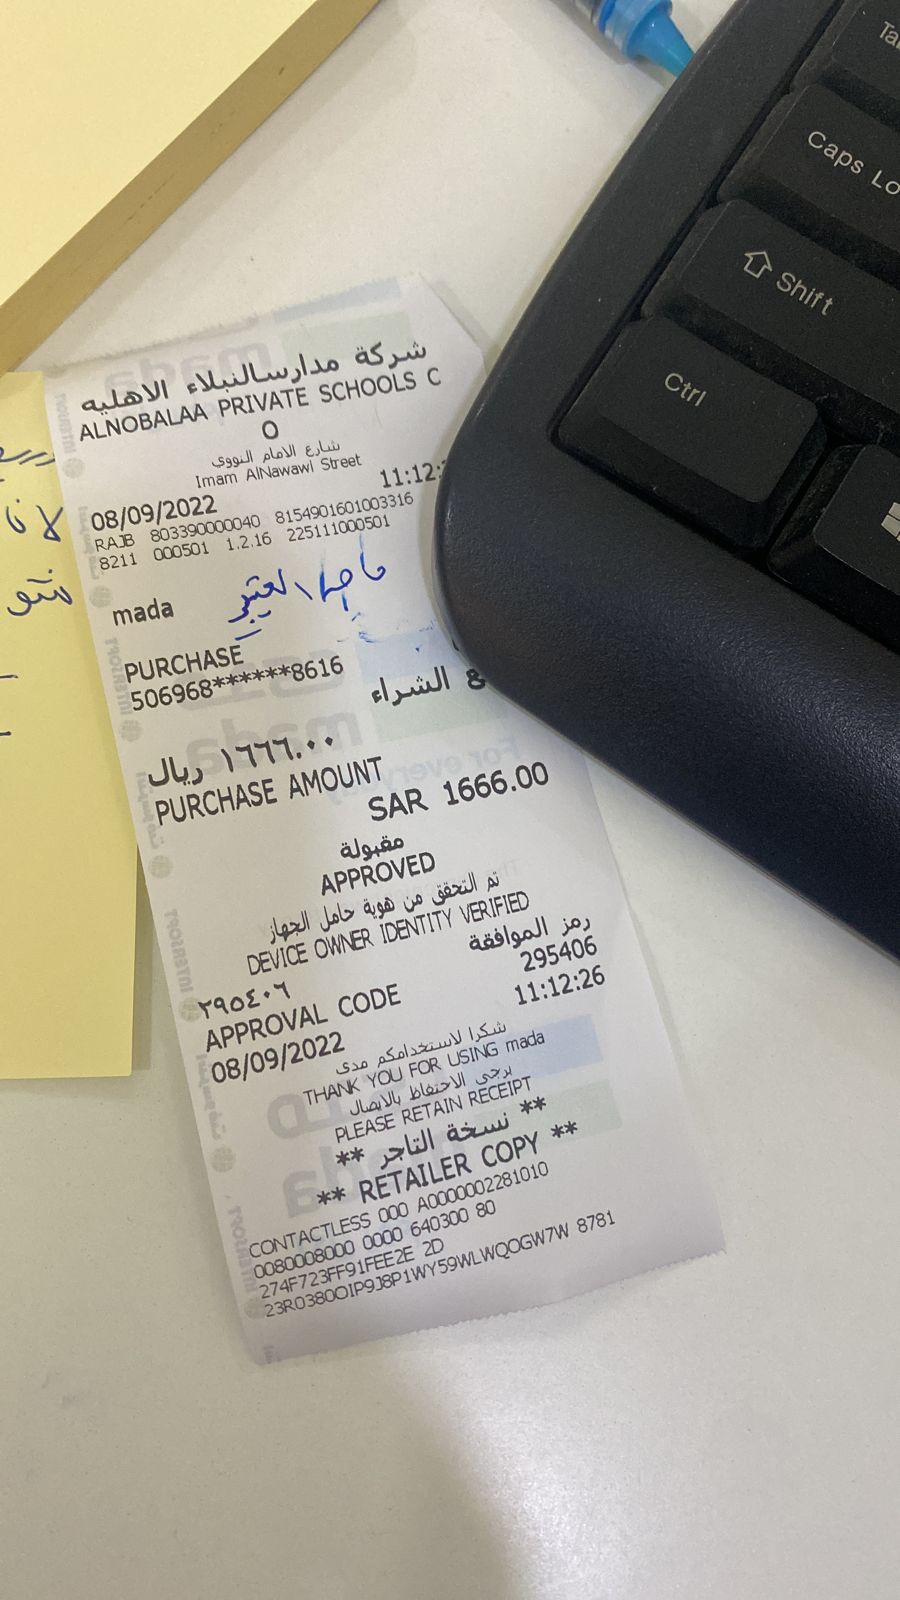 Ta
Caps Lo
Shift
Ctrl
شركة مدارسالنبلاء الاهليه
ALNOBALAA PRIVATE SCHOOLS C
O
شارع الامام النووي
Imam AlNawawi Street
08/09/2022 11:12:
RAJB 803390000040 8154901601003316
8211 000501 1.2.16 225111000501
mada
PURCHASE
506968******8616
الشراء
١٦٦٦.٠٠ ريال
PURCHASE AMOUNT
SAR 1666.00
مقبولة
APPROVED
تم التحقق من هوية حامل الجهاز
DEVICE OWNER IDENTITY VERIFIED
رمز الموافقة
٢٩٥٤٠٦ 295406
APPROVAL CODE
08/09/2022 11:12:26
شكرا لاستخدامكم مدى
THANK YOU FOR USING mada
يرجى الاحتفاظ بالايصال
PLEASE RETAIN RECEIPT
** نسخة التاجر **
** RETAILER COPY **
CONTACTLESS 000 A0000002281010
0080008000 0000 640300 80
274F723FF91FEE2E 2D
23R0380OIP9J8P1WY59WLWQOGW7W 8781